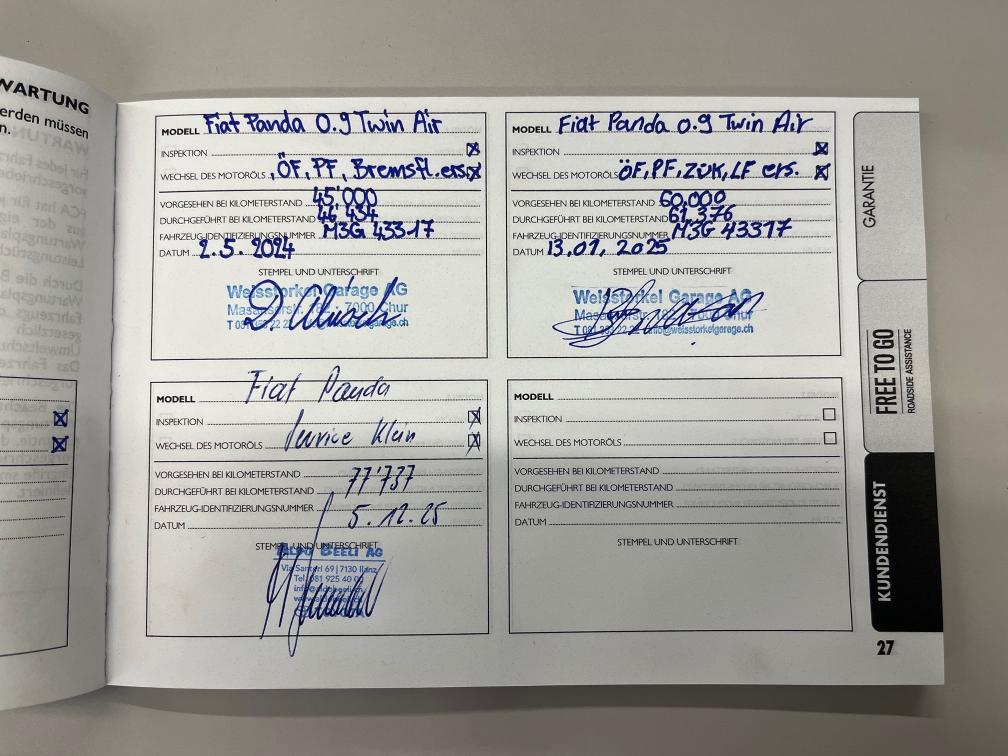 WARTUNG
erden müssen
n.
MODELL Fiat Panda 0.9 Twin Air
INSPEKTION
WECHSEL DES MOTORÖLS, ÖF, PF, Bremsfl. ers.
VORGESEHEN BEI KILOMETERSTAND 45'000
DURCHGEFÜHRT BEI KILOMETERSTAND 46'434
FAHRZEUG-IDENTIFIZIERUNGSNUMMER M3G 43317
DATUM 2.5. 2024
STEMPEL UND UNTERSCHRIFT
Weisstorkel Garage AG
7000 Chur
MODELL Fiat Panda 0.9 Twin Air
INSPEKTION
WECHSEL DES MOTORÖLS ÖF, PF, ZÜK, LF ers.
VORGESEHEN BEI KILOMETERSTAND 60,000
DURCHGEFÜHRT BEI KILOMETERSTAND 61,376
FAHRZEUG-IDENTIFIZIERUNGSNUMMER M3G 43317
DATUM 13,01, 2025
STEMPEL UND UNTERSCHRIFT
Weisstorkel Garage AG
info@weisstorkelgarage.ch
MODELL Fiat Panda
INSPEKTION
WECHSEL DES MOTORÖLS Service Klein
VORGESEHEN BEI KILOMETERSTAND
DURCHGEFÜHRT BEI KILOMETERSTAND 77'737
FAHRZEUG-IDENTIFIZIERUNGSNUMMER
DATUM 5.12.25
STEMPEL UND UNTERSCHRIFT
ALDO BEELI AG
Via Santeri 69 | 7130 Ilanz
Tel. 081 925 40 00
MODELL
INSPEKTION
WECHSEL DES MOTORÖLS
VORGESEHEN BEI KILOMETERSTAND
DURCHGEFÜHRT BEI KILOMETERSTAND
FAHRZEUG-IDENTIFIZIERUNGSNUMMER
DATUM
STEMPEL UND UNTERSCHRIFT
GARANTIE
FREE TO GO
ROADSIDE ASSISTANCE
KUNDENDIENST
27